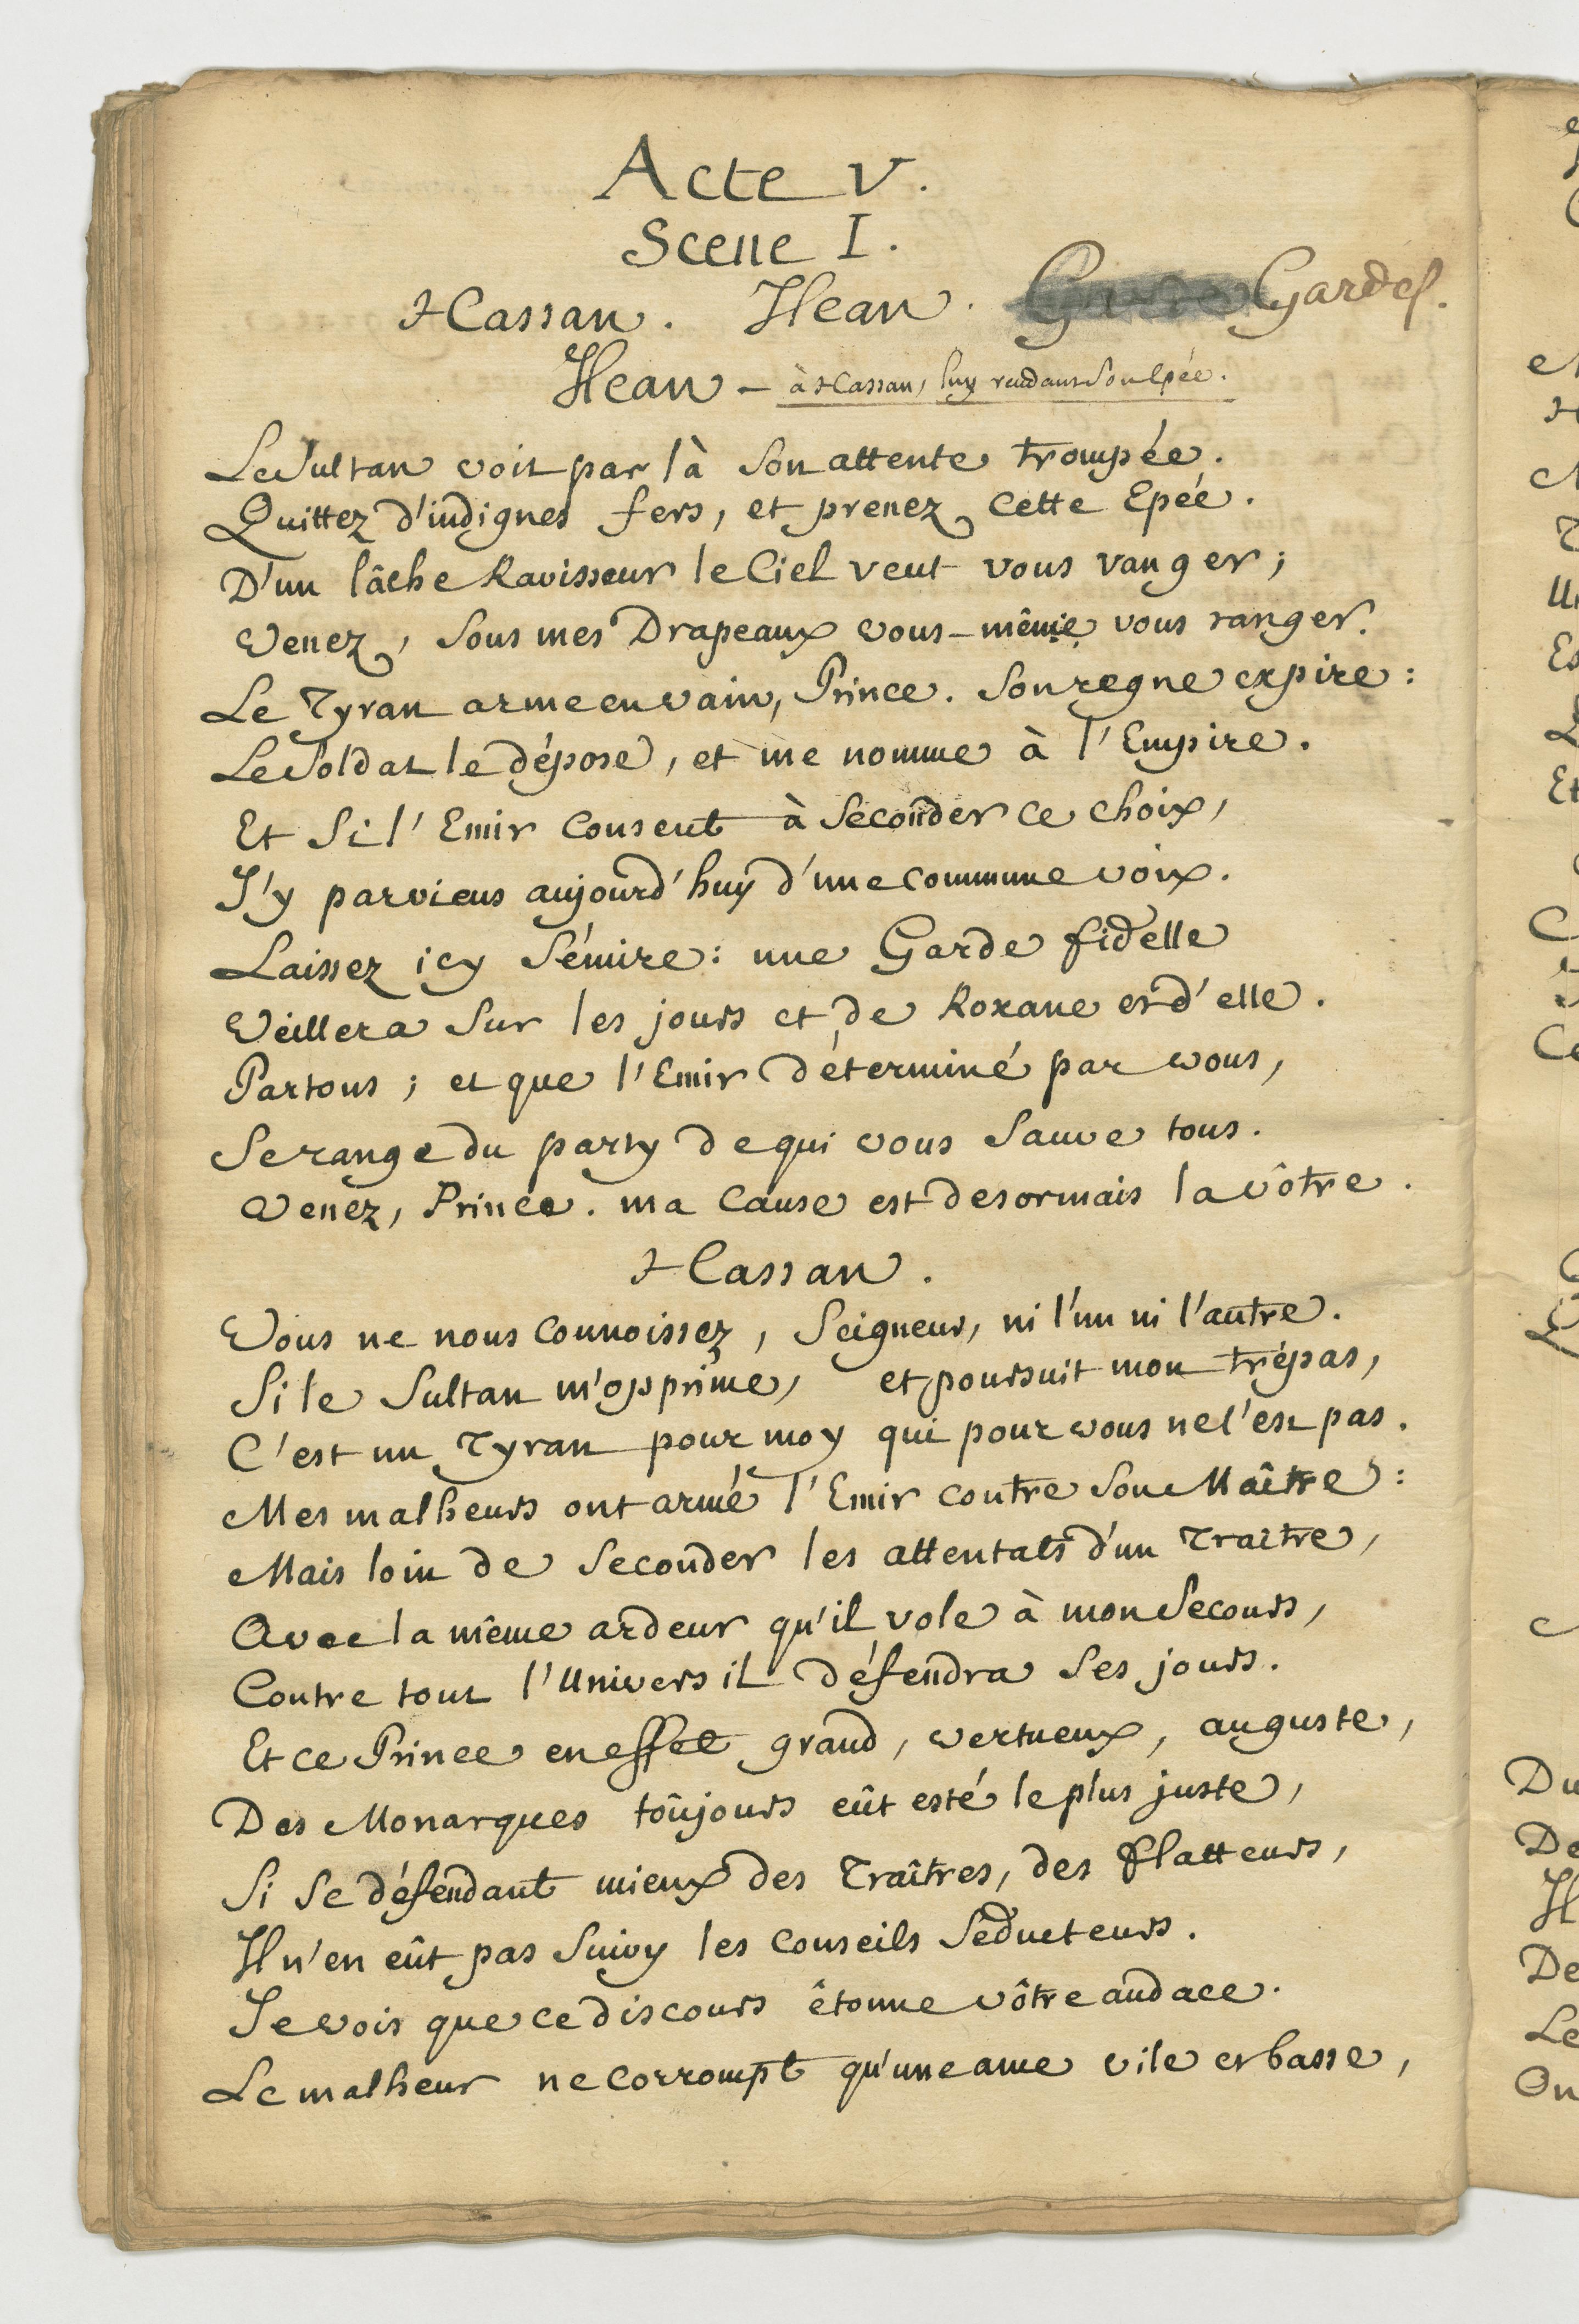 Acte V.
Scene I.
Hassan. Ilean. Gardes.
Ilean – à Hassan, luy rendant son Epée.
Le Sultan voit par là son attente trompée.
Quittez d'indignes fers, et prenez cette Epée.
D'un lâche Ravisseur le Ciel veut vous vanger;
Venez, sous mes Drapeaux vous-même vous ranger.
Le Tyran arme en vain, Prince. Son regne expire:
Le Soldat le dépose, et me nomme à l'Empire.
Et si l'Emir consent à seconder ce choix,
J'y parviens aujourd'huy d'une commune voix.
Laissez icy Sémire: une Garde fidelle
Veillera sur les jours et de Roxane et d'elle.
Partons; et que l'Emir déterminé par vous,
Se range du party de qui vous sauve tous.
Venez, Prince. ma cause est desormais la vôtre.
Hassan.
Vous ne nous connoissez, Seigneur, ni l'un ni l'autre.
Si le Sultan m'opprime, et poursuit mon trépas,
C'est un Tyran pour moy qui pour vous ne l'est pas.
Mes malheurs ont armé l'Emir contre son Maître:
Mais loin de seconder les attentats d'un Traître,
Avec la même ardeur qu'il vole à mon secours,
Contre tout l'Univers il défendra ses jours.
Et ce Prince en effet grand, vertueux, auguste,
Des Monarques toûjours eût esté le plus juste,
Si se défendant mieux des Traîtres, des flatteurs,
Il n'en eût pas suivy les conseils séducteurs.
Je vois que ce discours étonne vôtre audace.
Le malheur ne corrompt qu'une ame vile et basse,